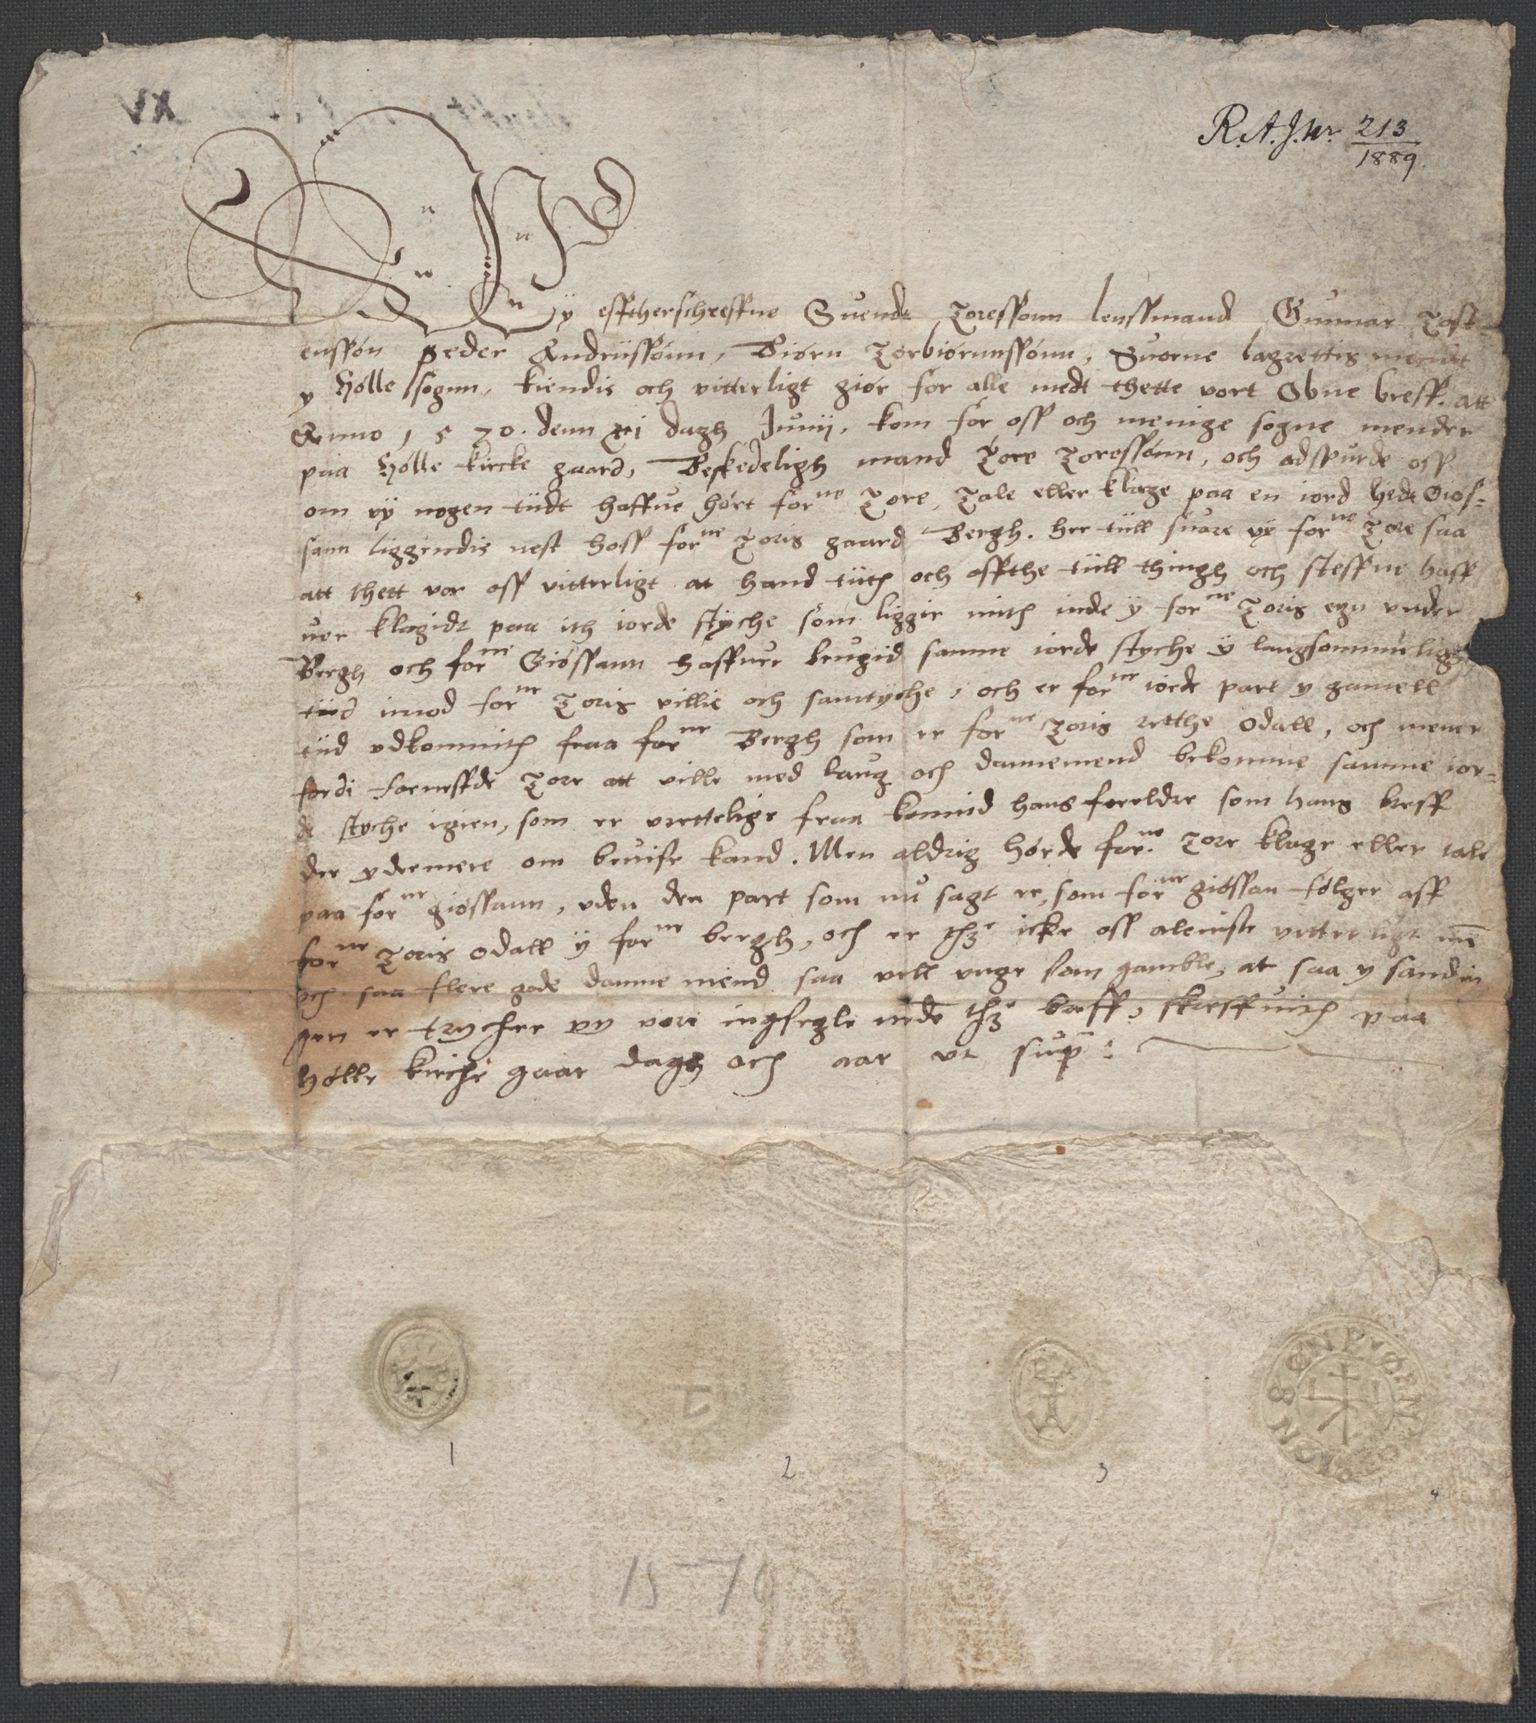 R. A. J. nr. 213
1889.
Wy effterschreffne Suendt Toressønn lenssmand Gunnar Tast-
enssøn Peder Andrüssønn, Biørn Torbiørnnssønn, Suorne lagrettis mendt
y Hølle sognn, kiendis och vitterligt giør for alle medt thette vort Obne breff. att
Anno 1570. denn xi dagh Junij, kom for oss och menige sogne mender
paa Hølle kircke gaard, Beskedeligh mand Tore Toressønn, och adspurde oss
om vÿ nogen tiidt haffue hørt for^ne Tore, Tale eller klage paa en iord hedt Giøs-
sann liggendis nest hoss for^ne Toris gaard Bergh. her tiill suare vÿ for^ne Tore saa
att thett var oss vitterligt at hand tiith och offthe tiill thingh och steffne haff
uer klagidt paa ith iorde stÿche som liggir mith inde ÿ for^ne Toris egn vnder
Bergh och for^ne Giøssann haffuer brugid samme iorde styche ÿ langsommeligh
tiid imod for^ne Toris villie och samtÿche, och er for^ne iorde part y gamell
tiid vdkommith fraa for^ne Bergh som er for^ne Toris retthe odall, och mener
fordi forneffde Tore att ville med laug och dannemend bekomme samme ior-
de styche igien, som er vrettelige fraa kommid hans foreldre som hans breff
der ydermere om beuise kand. Men aldrig hørde for^ne Tore klage eller tale
paa for^ne giøssann, vden den part som nu sagt er, som for^ne giøssan følger aff
for^ne Toris odall ÿ for^ne bergh, och er thz icke oss aleniste vitterligt mē
och saa flere gode danne mend saa vell vnge som gamble, at saa y sandin
gen er trycher vy vore ingsegle nede thz breff, skreffuith paa
Hølle kirche gaar dagh och aar vt sup:
1
2
3
4
1570